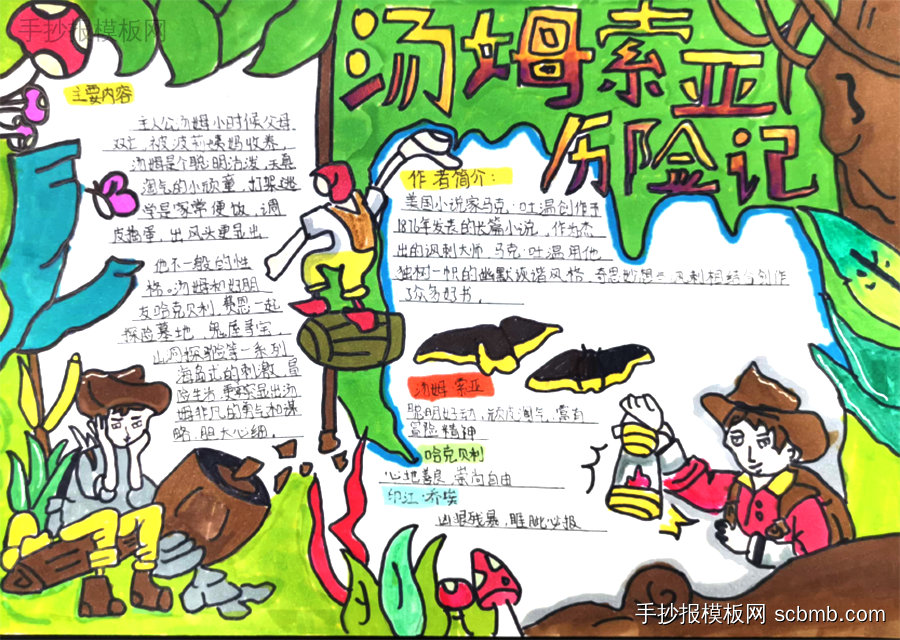 手抄报模板网
汤姆索亚
历险记
主要内容
主人公汤姆小时候父母
双亡,被波莉姨妈收养,
汤姆是个聪明活泼,天真
淘气的小顽童,打架逃
学是家常便饭,调
皮捣蛋,出风头更显出
他不一般的性
格。汤姆和好朋
友哈克贝利,费恩一起
探险墓地,鬼屋寻宝,
山洞探险等一系列
海岛式的刺激冒
险生活,更显出汤
姆非凡的勇气和谋
略,胆大心细.
作者简介:
美国小说家马克·吐温创作于
1876年发表的长篇小说,作为杰
出的讽刺大师马克·吐温用他
独树一帜的幽默诙谐风格,奇思妙想与讽刺相结合创作
了众多好书.
汤姆索亚
聪明好动,顽皮淘气,富有
冒险精神
哈克贝利
心地善良,崇尚自由
印江·乔埃
凶狠残暴,睚眦必报
手抄报模板网 scbmb.com